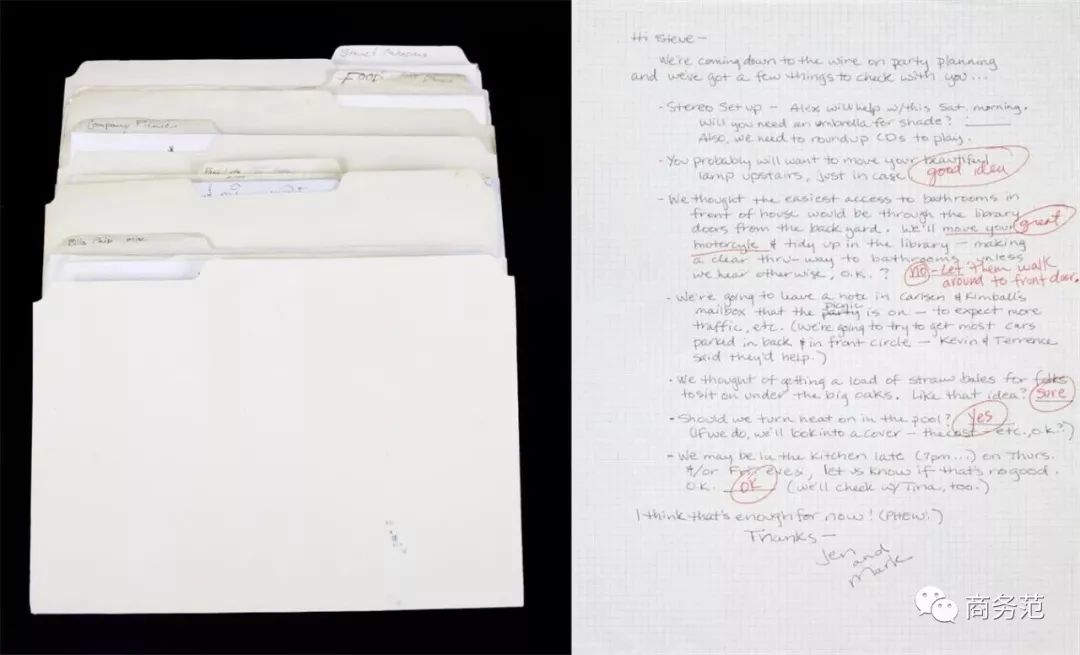 FOOD
Company Picnic
Bills Paid misc
Hi Steve –
We're coming down to the wire on party planning
and we've got a few things to check with you...
· Stereo Set up – Alex will help w/this Sat. morning.
Will you need an umbrella for shade?
Also, we need to roundup CDs to play.
· You probably will want to move your beautiful
lamp upstairs, just in case good idea
· We thought the easiest access to bathrooms in
front of house would be through the library
doors from the backyard. We'll move your great
motorcyle & tidy up in the library – making
a clear thru-way to bathrooms unless
we hear otherwise, O.K.? no – Let them walk
around to front door.
· We're going to leave a note in Carlsen & Kimball's
picnic
mailbox that the party is on – to expect more
traffic, etc. (We're going to try to get most cars
parked in back & in front circle – Kevin & Terrence
said they'd help.)
· We thought of getting a load of straw bales for folks
to sit on under the big oaks. Like that idea? sure
· Should we turn heat on in the pool? Yes
(If we do, we'll look into a cover – the cost – etc., o.k.?)
· We may be in the kitchen late (7pm...) on Thurs.
&/or Fri. eves, let us know if that's no good.
O.K. OK (we'll check w/Tina, too.)
I think that's enough for now! (PHEW!)
Thanks –
Jen and
Mark
商务范